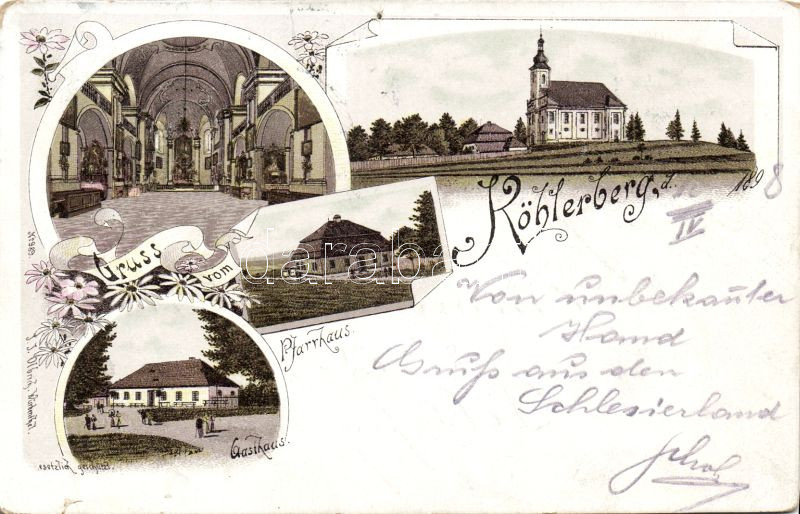 Gruss
vom
Köhlerberg, d. 189 8
IV
Pfarrhaus.
Gasthaus.
esetzlich geschützt.
darab
Von unbekauter
Hand
Gruß aus den
Schlesierland